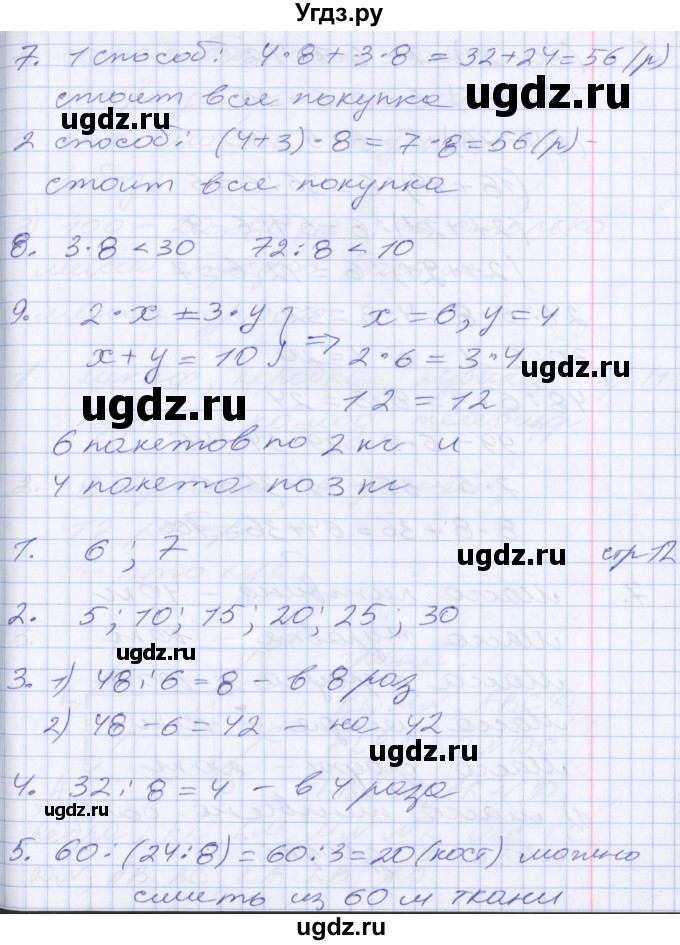 Угдз.ру
7. 1 способ: 4·8+3·8 = 32+24=56(р)
стоит вся покупка
ugdz.ru
ugdz.ru
2 способ: (4+3)·8 = 7·8=56(р) -
стоит вся покупка
8. 3·8<30 72:8<10
9. 2·x = 3·y } x=6, y=4
x+y=10 } => 2·6=3·4
ugdz.ru
ugdz.ru
12=12
6 пакетов по 2 кг и
4 пакета по 3 кг
1. 6; 7 ugdz.ru стр 12
2. 5; 10; 15; 20; 25; 30
ugdz.ru
3. 1) 48:6=8 - в 8 раз
2) 48-6=42 - на 42
ugdz.ru
4. 32:8=4 - в 4 раза
ugdz.ru
5. 60:(24:8)=60:3=20(кост) можно
сшить из 60 м ткани
ugdz.ru